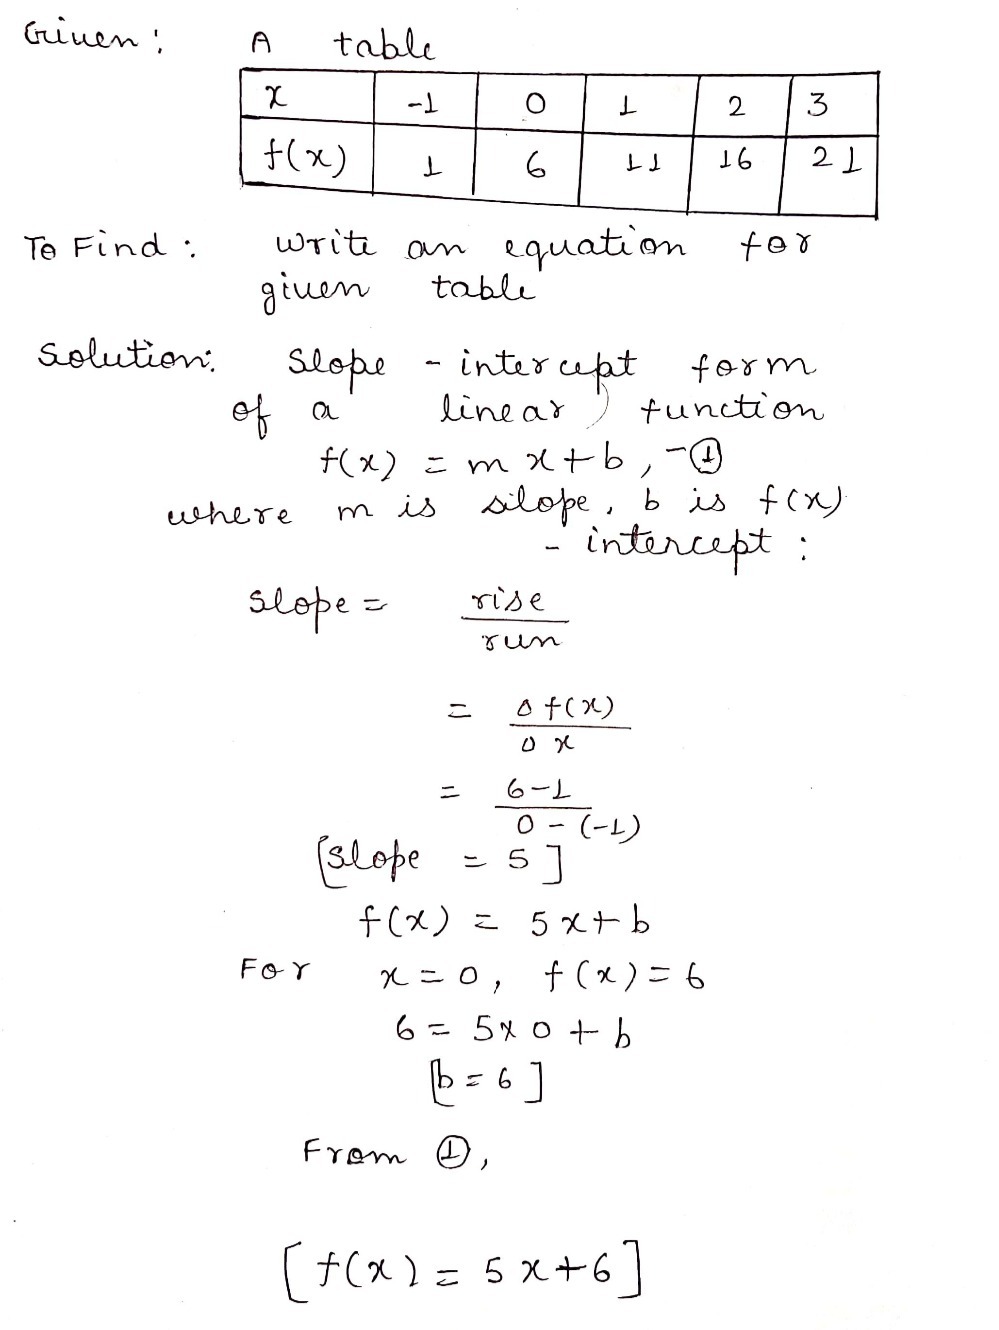 Given: A table
x -1 0 1 2 3
f(x) 1 6 11 16 21
To Find: write an equation for
given table
Solution: Slope - intercept form
of a linear function
f(x) = mx+b, -①
where m is slope, b is f(x)
- intercept :
Slope = rise
run
= Δ f(x)
Δ x
= 6-1
0-(-1)
[slope = 5]
f(x) = 5x+b
For x=0, f(x)=6
6 = 5×0+b
[b=6]
From ①,
[f(x) = 5x+6]